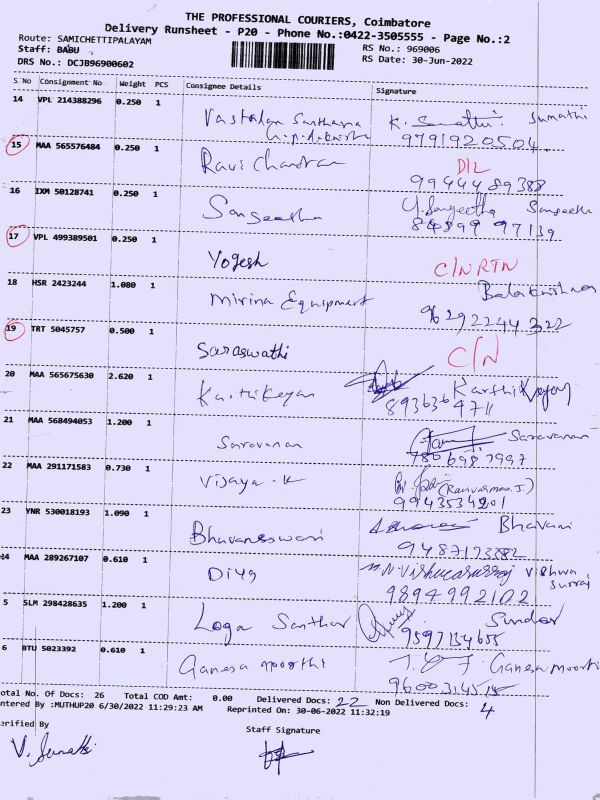 THE PROFESSIONAL COURIERS, Coimbatore
Delivery Runsheet - P20 - Phone No.:0422-3505555 - Page No.:2
Route: SAMICHETTIPALAYAM
Staff: BABU
RS No.: 969006
DRS No.: DCJB96900602
RS Date: 30-Jun-2022
S No Consignment No Weight PCS Consignee Details Signature
14 VPL 214388296 0.250 1
Sumathi
9791920504
15 MAA 565576484 0.250 1
Ravi Chandran
D/L
9944489388
16 IXM 50128741 0.250 1
Sangeetha
Y. Sangeetha Sangeetha
84899 97139
17 VPL 499389501 0.250 1
Yogesh
C/N RTN
18 HSR 2423244 1.080 1
Mirina Equipment
Balakrishnan
96 292244 322
19 TRT 5045757 0.500 1
Saraswathi
C/N
20 MAA 565675630 2.620 1
Karthikeyan
Karthikeyan
893636 4711
21 MAA 568494053 1.200 1
Saravanan
Saravanan
22 MAA 291171583 0.730 1
Vijaya . K
(Ravivarman.J.)
23 YNR 530018193 1.090 1
Bhuvaneswari
Bhavani
24 MAA 289267107 0.610 1
Diya
Vishwa Surraj
9894992102
5 SLM 298428635 1.200 1
Loga Santhar
Sundar
9597134655
6 BTU 5023392 0.610 1
Ganesa moorthi
Ganesa moorthi
otal No. Of Docs: 26 Total COD Amt: 0.00 Delivered Docs: 22 Non Delivered Docs: 4
ntered By :MUTHUP20 6/30/2022 11:29:23 AM Reprinted On: 30-06-2022 11:32:19
erified By
Staff Signature